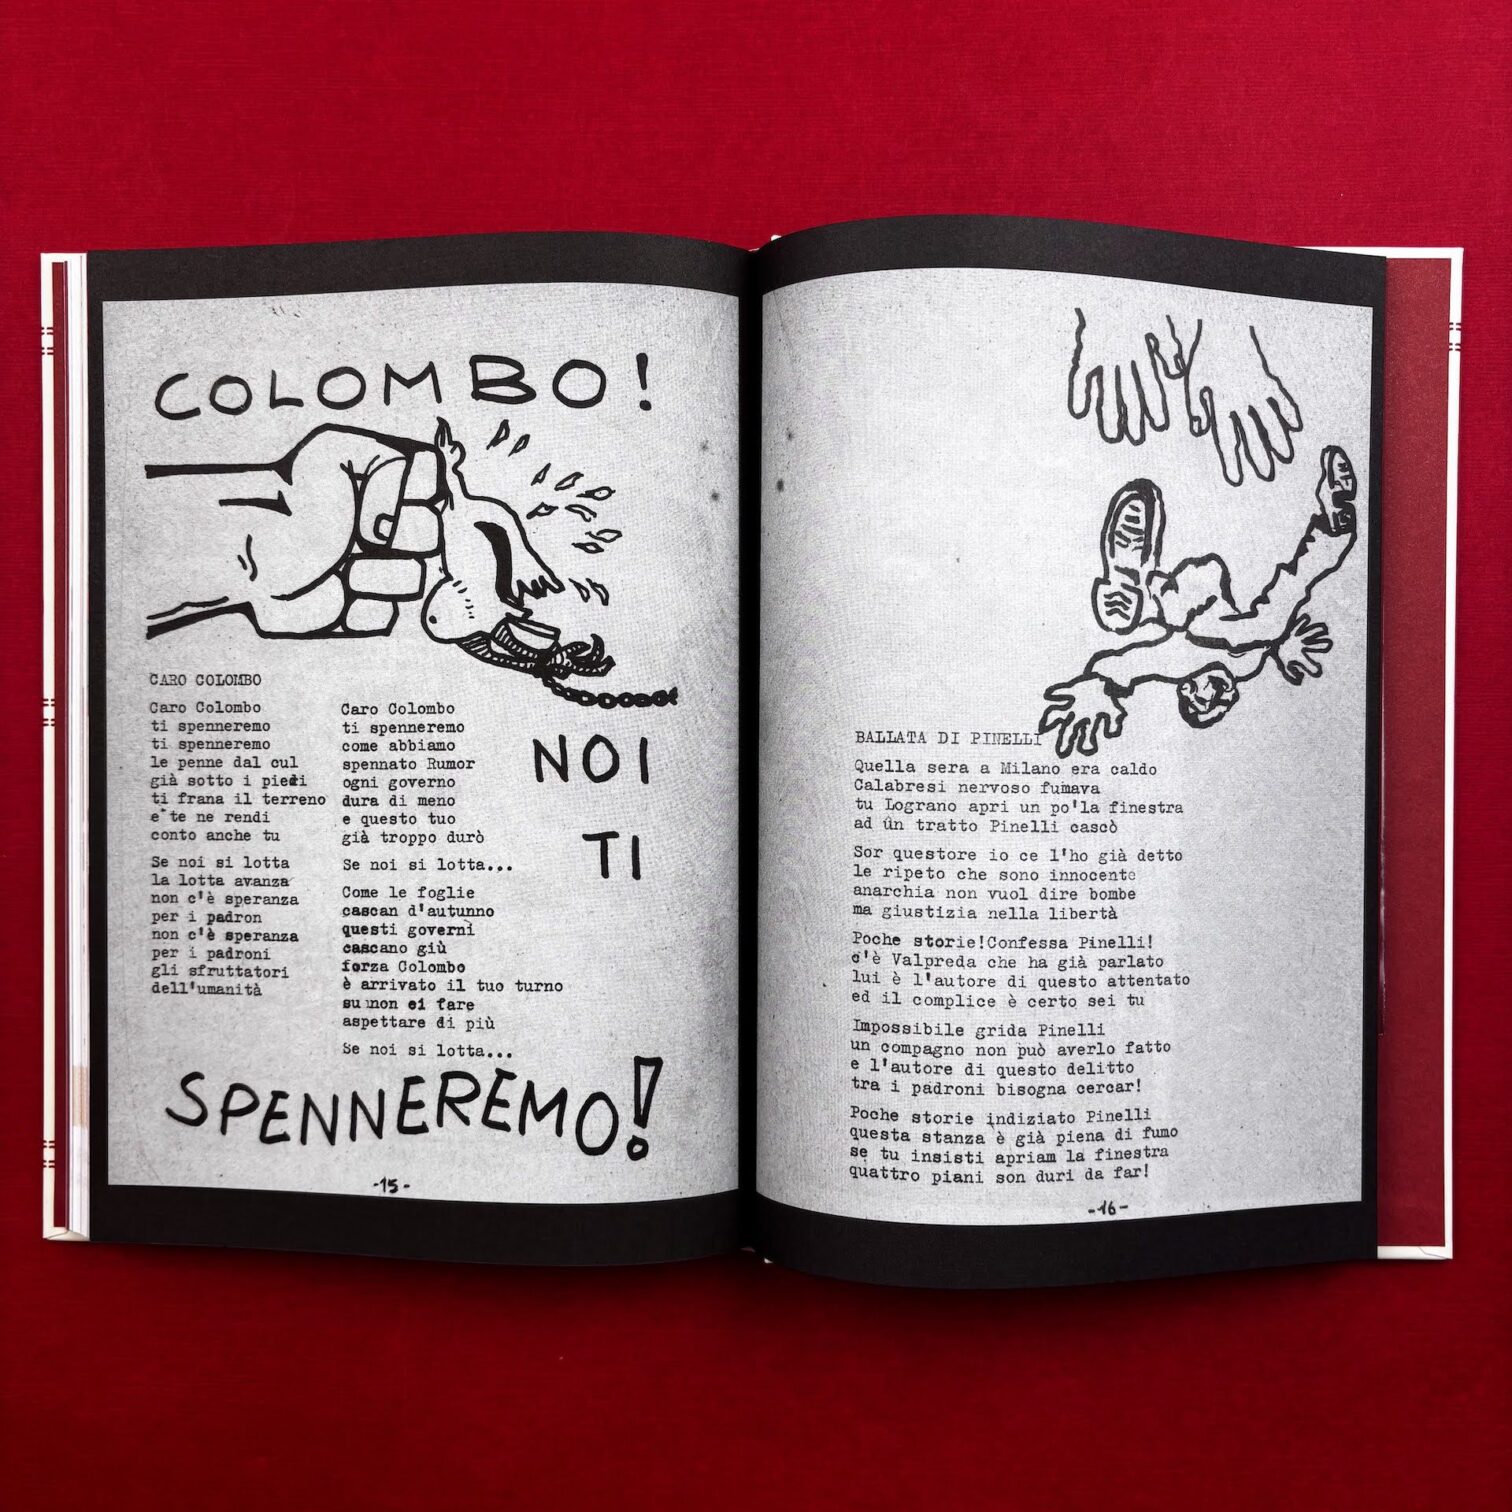 COLOMBO!
CARO COLOMBO
Caro Colombo
ti spenneremo
ti spenneremo
le penne dal cul
già sotto i piedi
ti frana il terreno
e te ne rendi
conto anche tu
Se noi si lotta
la lotta avanza
non c'è speranza
per i padron
non c'è speranza
per i padroni
gli sfruttatori
dell'umanità
Caro Colombo
ti spenneremo
come abbiamo
spennato Rumor
ogni governo
dura di meno
e questo tuo
già troppo durò
Se noi si lotta...
Come le foglie
cascan d'autunno
questi governi
cascano giù
forza Colombo
è arrivato il tuo turno
su non ci fare
aspettare di più
Se noi si lotta...
NOI
TI
SPENNEREMO!
-15-
BALLATA DI PINELLI
Quella sera a Milano era caldo
Calabresi nervoso fumava
tu Lograno apri un po'la finestra
ad ûn tratto Pinelli cascò
Sor questore io ce l'ho già detto
le ripeto che sono innocente
anarchia non vuol dire bombe
ma giustizia nella libertà
Poche storie!Confessa Pinelli!
c'è Valpreda che ha già parlato
lui è l'autore di questo attentato
ed il complice è certo sei tu
Impossibile grida Pinelli
un compagno non può averlo fatto
e l'autore di questo delitto
tra i padroni bisogna cercar!
Poche storie indiziato Pinelli
questa stanza è già piena di fumo
se tu insisti apriam la finestra
quattro piani son duri da far!
-16-